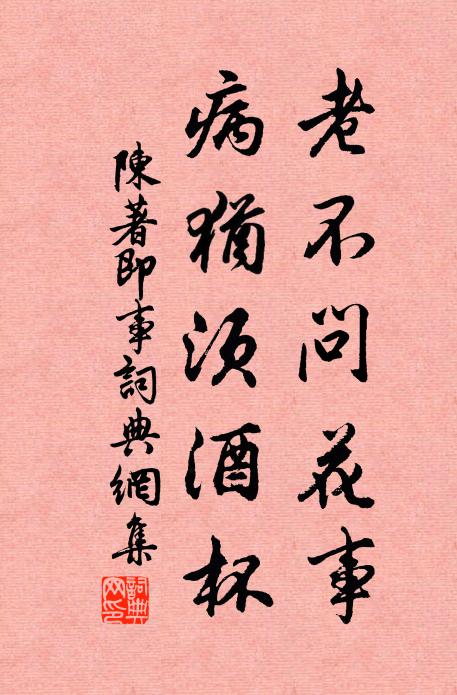 老不问花事
病猶須酒杯
陳著即事詞典網集
詞典網印